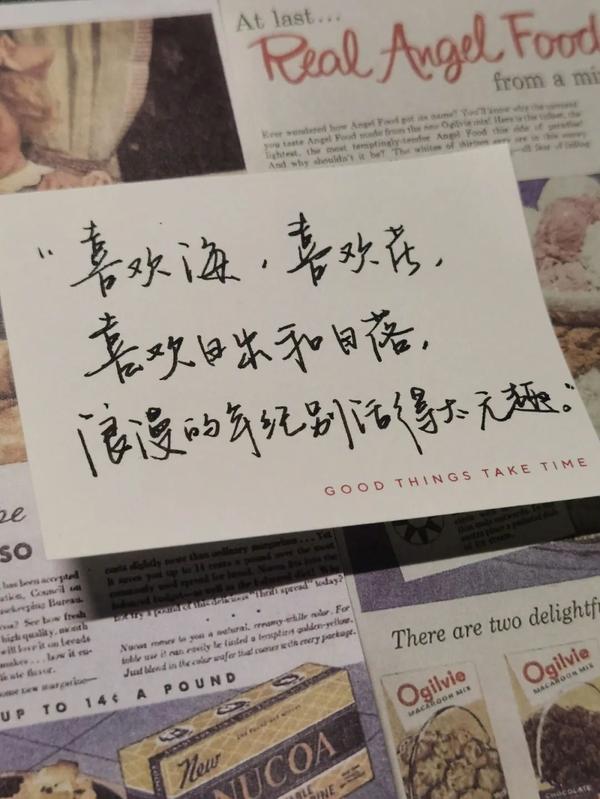 At last...
Real Angel Food
from a mi
Ever wondered how Angel Food got its name? You'll know why the moment
you taste Angel Food made from the new Ogilvie mix! Here is the
lightest, the most temptingly-tender Angel Food this side of paradise!
And why shouldn't it be? The whites of thirteen
“喜欢海，喜欢花，
喜欢日出和日落，
浪漫的年纪别活得太无趣。”
GOOD THINGS TAKE TIME
SO
has been accepted
Council on
Housekeeping Bureau.
See how fresh
high quality, mouth
will love it on breads
costs slightly more than ordinary margarine... Yet
it saves you up to 14 cents a pound over the most
Nucoa comes to you a natural, creamy-white color. For
table use it can easily be tinted a tempting golden-yellow.
Just blend in the color wafer that comes with every package.
UP TO 14¢ A POUND
New
NUCOA
There are two delightfu
Ogilvie
MACAROON MIX
Ogilvie
MACAROON MIX
CHOCOLATE